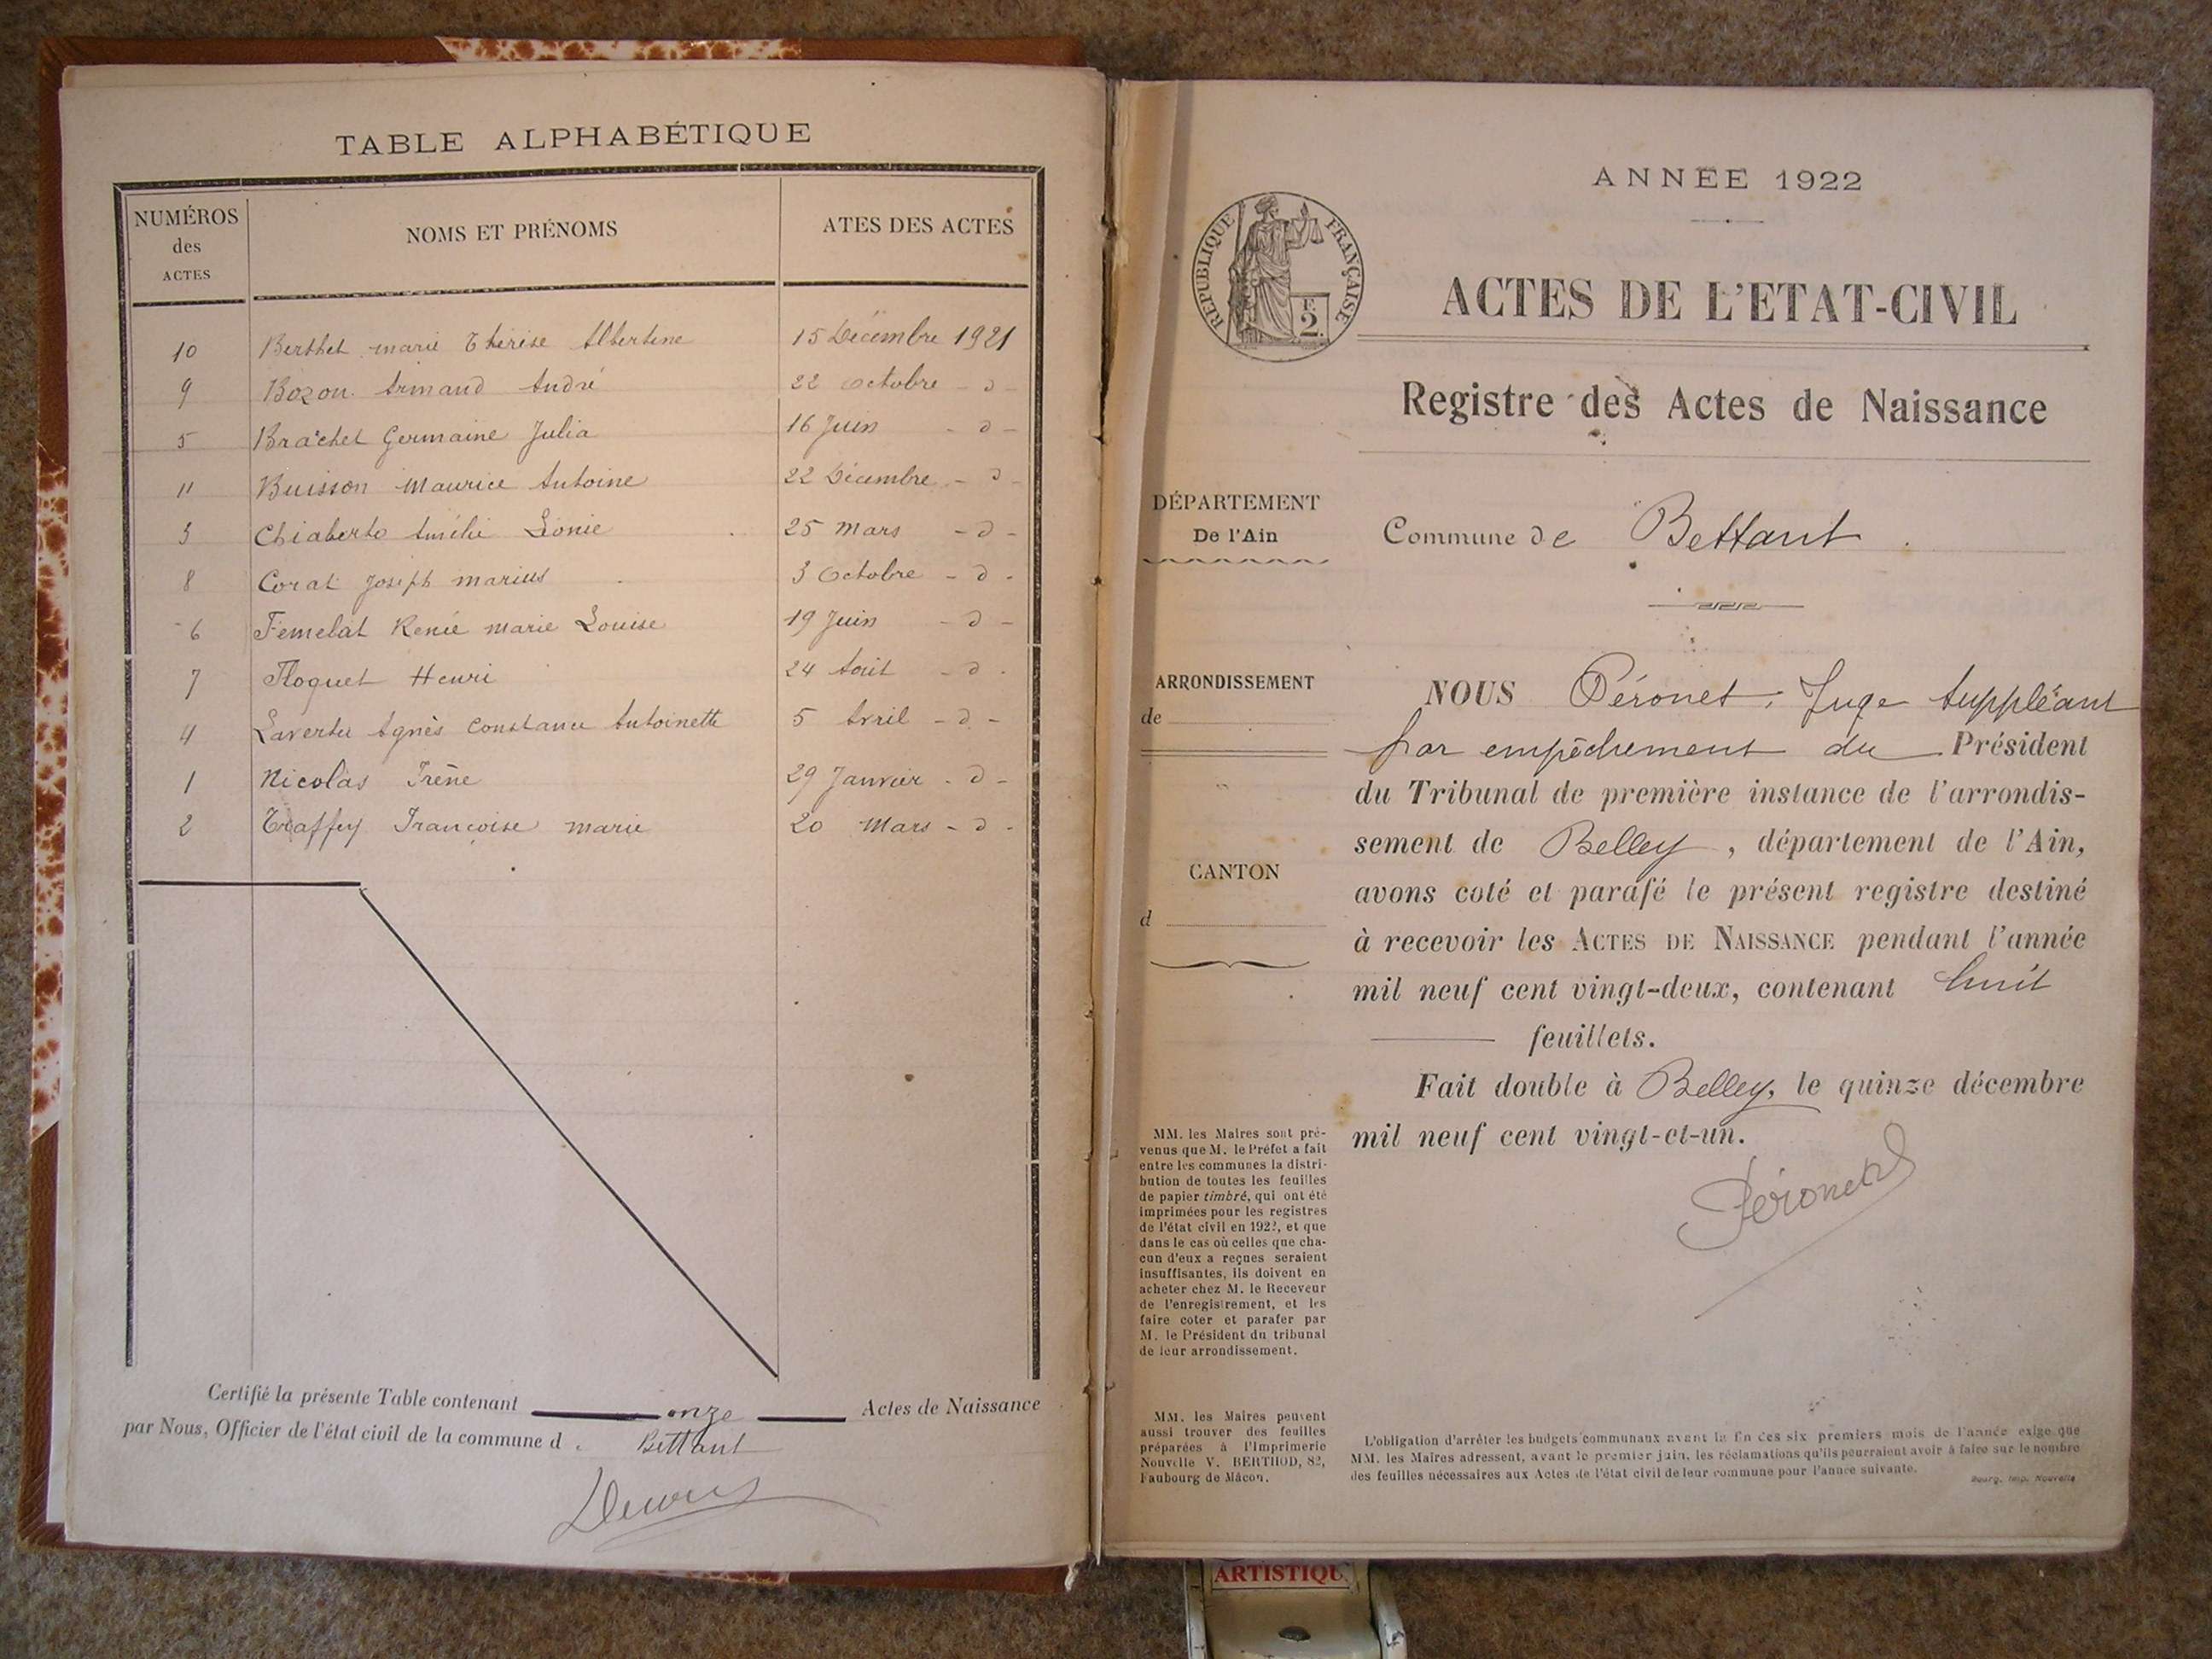 TABLE ALPHABÉTIQUE
NUMÉROS des ACTES NOMS ET PRÉNOMS ATES DES ACTES
10 Berthet marie Thérèse Albertine 15 Décembre 1921
9 Bozon Armand André 22 octobre - d -
5 Brachet Germaine Julia 16 Juin - d -
11 Buisson Maurice Antoine 22 Décembre - d -
3 Chiaberto Amélie Léonie 25 mars - d -
8 Corat Joseph marius 3 Octobre - d -
6 Femelat Renée marie Louise 19 Juin - d -
7 Floquet Henri 24 Août - d -
4 Lavertu Agnès Constance Antoinette 5 Avril - d -
1 Nicolas Irène 29 Janvier - d -
2 Traffey Françoise marie 20 Mars - d -
Certifié la présente Table contenant onze Actes de Naissance
par Nous, Officier de l'état civil de la commune de Bettant
ANNÉE 1922
RÉPUBLIQUE FRANÇAISE
2
ACTES DE L'ETAT-CIVIL
Registre des Actes de Naissance
DÉPARTEMENT
De l'Ain
Commune de Bettant
ARRONDISSEMENT
de
CANTON
d
NOUS Péronet, Juge suppléant
par empêchement du Président
du Tribunal de première instance de l'arrondis-
sement de Belley, département de l'Ain,
avons coté et parafé le présent registre destiné
à recevoir les ACTES DE NAISSANCE pendant l'année
mil neuf cent vingt-deux, contenant huit
feuillets.
Fait double à Belley, le quinze décembre
mil neuf cent vingt-et-un.
Péronet
MM. les Maires sont pré-
venus que M. le Préfet a fait
entre les communes la distri-
bution de toutes les feuilles
de papier timbré, qui ont été
imprimées pour les registres
de l'état civil en 1922, et que
dans le cas où celles que cha-
cun d'eux a reçues seraient
insuffisantes, ils doivent en
acheter chez M. le Receveur
de l'enregistrement, et les
faire coter et parafer par
M. le Président du tribunal
de leur arrondissement.
MM. les Maires peuvent
aussi trouver des feuilles
préparées à l'Imprimerie
Nouvelle V. BERTHOD, 82,
Faubourg de Mâcon.
L'obligation d'arrêter les budgets communaux avant la fin des six premiers mois de l'année exige que
MM. les Maires adressent, avant le premier juin, les réclamations qu'ils pourraient avoir à faire sur le nombre
des feuilles nécessaires aux Actes de l'état civil de leur commune pour l'année suivante.
Bourg, Imp. Nouvelle
ARTISTIQU